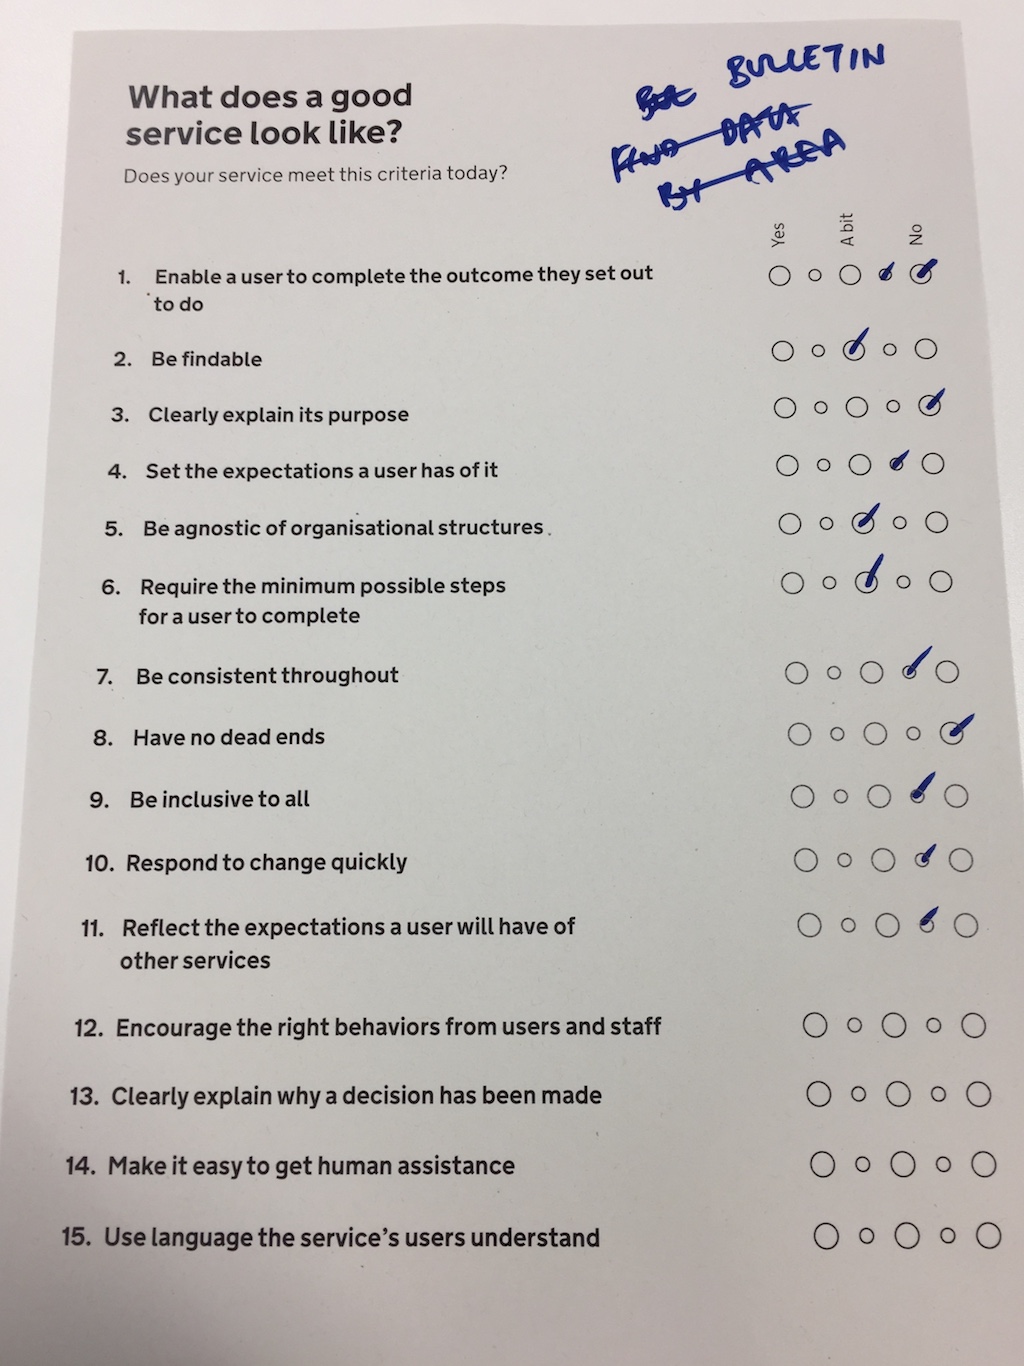 What does a good
service look like?
Does your service meet this criteria today?
BULLETIN
FIND DATA
BY AREA
Yes A bit No
1. Enable a user to complete the outcome they set out
to do
2. Be findable
3. Clearly explain its purpose
4. Set the expectations a user has of it
5. Be agnostic of organisational structures.
6. Require the minimum possible steps
for a user to complete
7. Be consistent throughout
8. Have no dead ends
9. Be inclusive to all
10. Respond to change quickly
11. Reflect the expectations a user will have of
other services
12. Encourage the right behaviors from users and staff
13. Clearly explain why a decision has been made
14. Make it easy to get human assistance
15. Use language the service's users understand